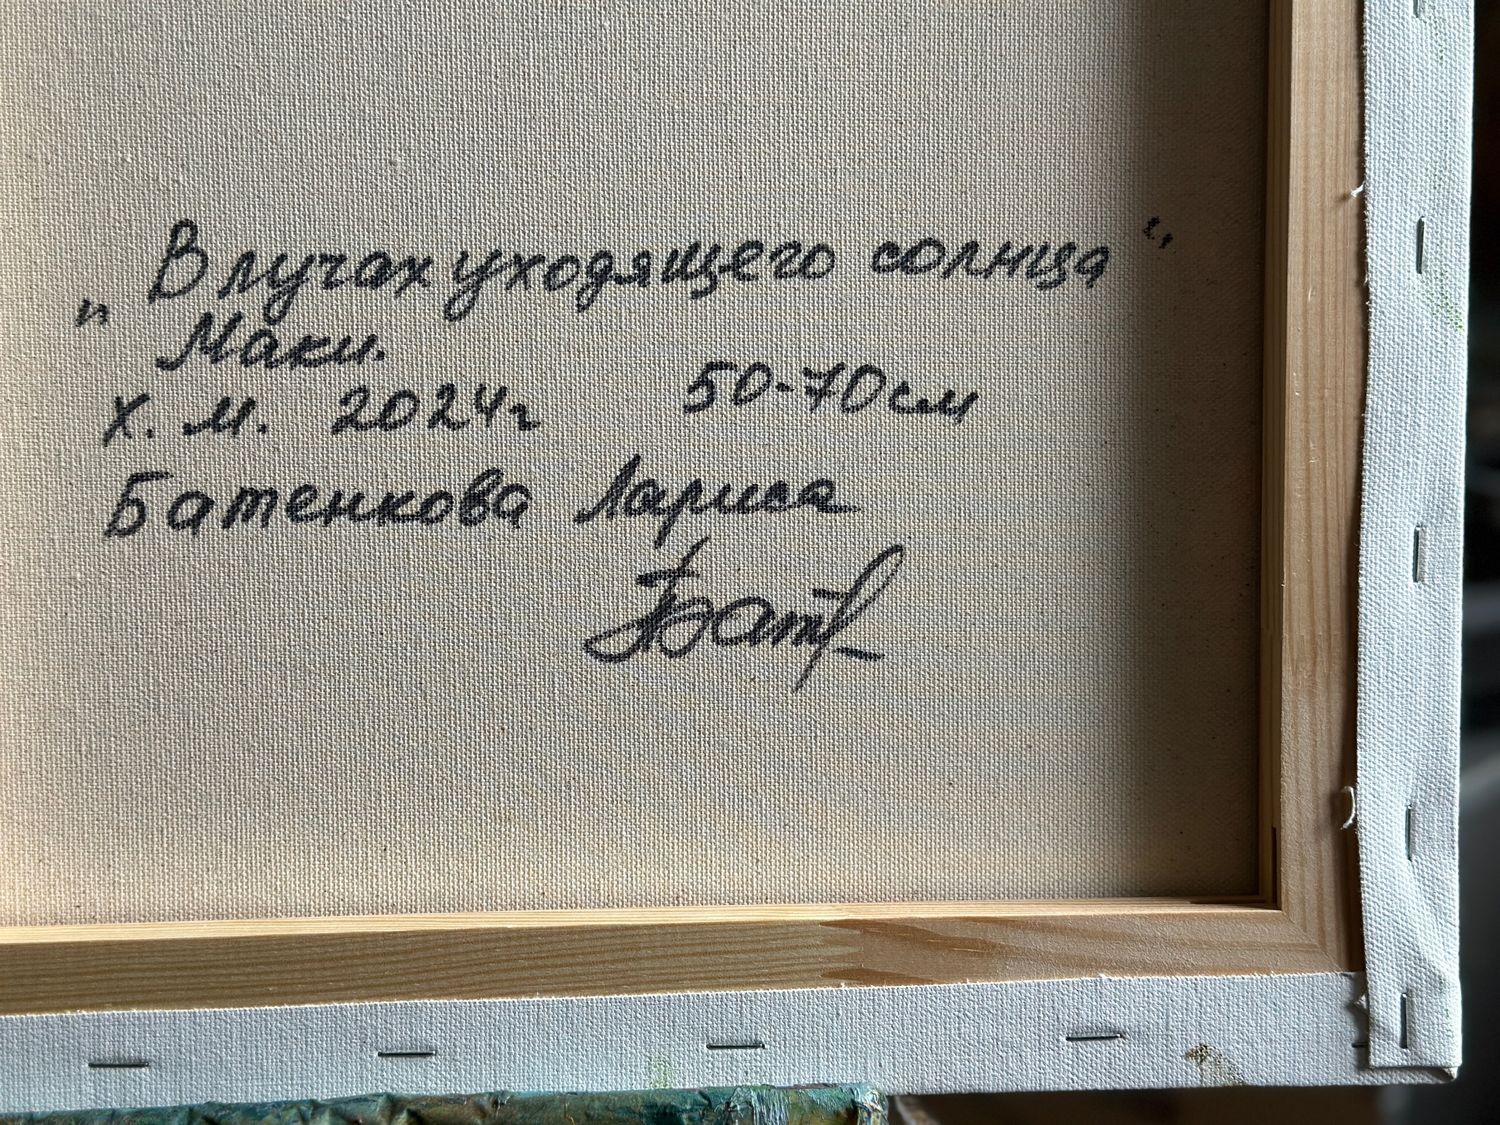 „В лучах уходящего солнца“
Маки.
Х. М. 2024г 50-70см
Батенкова Лариса